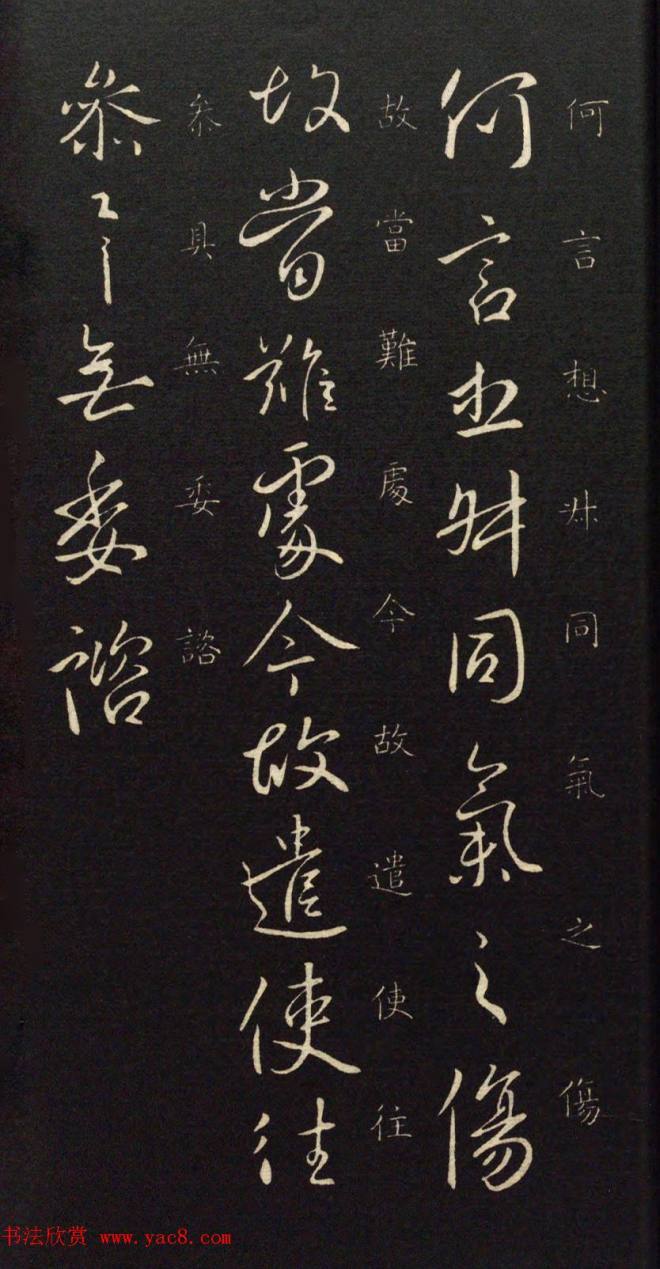 何言想𠦑同氣之傷
何言想𠦑同氣之傷
故當難處今故遣使往
故當難處今故遣使往
叅具無委諮
叅〻具無委諮
书法欣赏 www.yac8.com